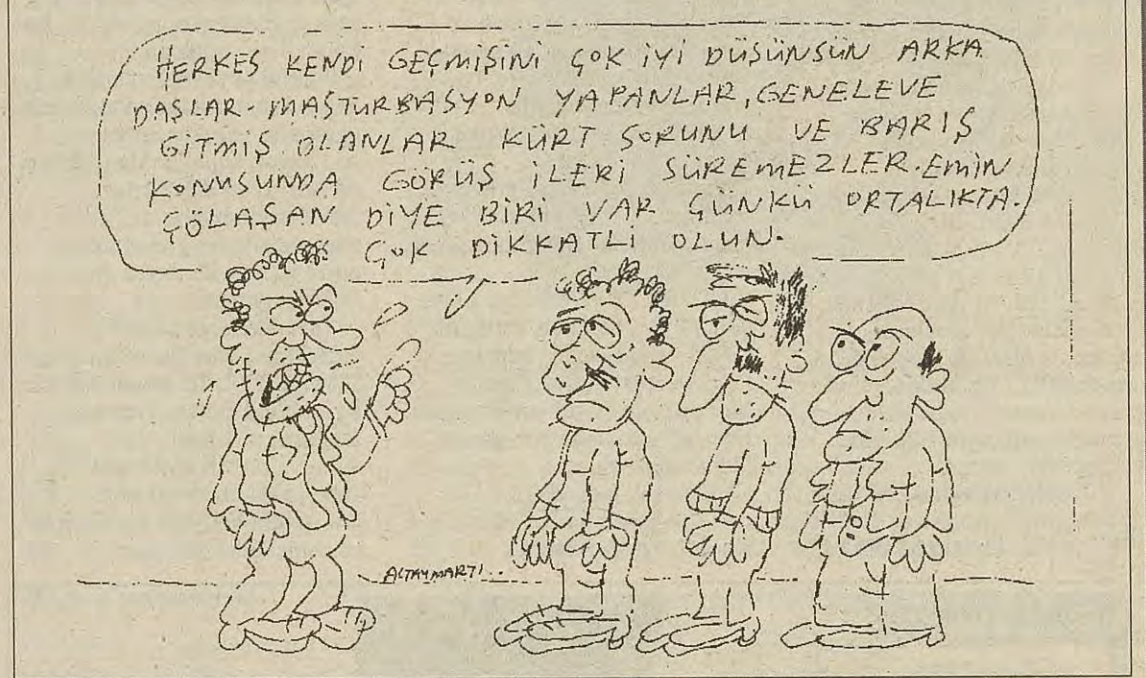 HERKES KENDİ GEÇMİŞİNİ ÇOK İYİ DÜŞÜNSÜN ARKA
DAŞLAR. MASTURBASYON YAPANLAR, GENELEVE
GİTMİŞ OLANLAR KÜRT SORUNU VE BARIŞ
KONUSUNDA GÖRÜŞ İLERİ SÜREMEZLER. EMİN
ÇÖLAŞAN DİYE BİRİ VAR ÇÜNKÜ ORTALIKTA.
ÇOK DİKKATLİ OLUN.
ALTAYMARTI..